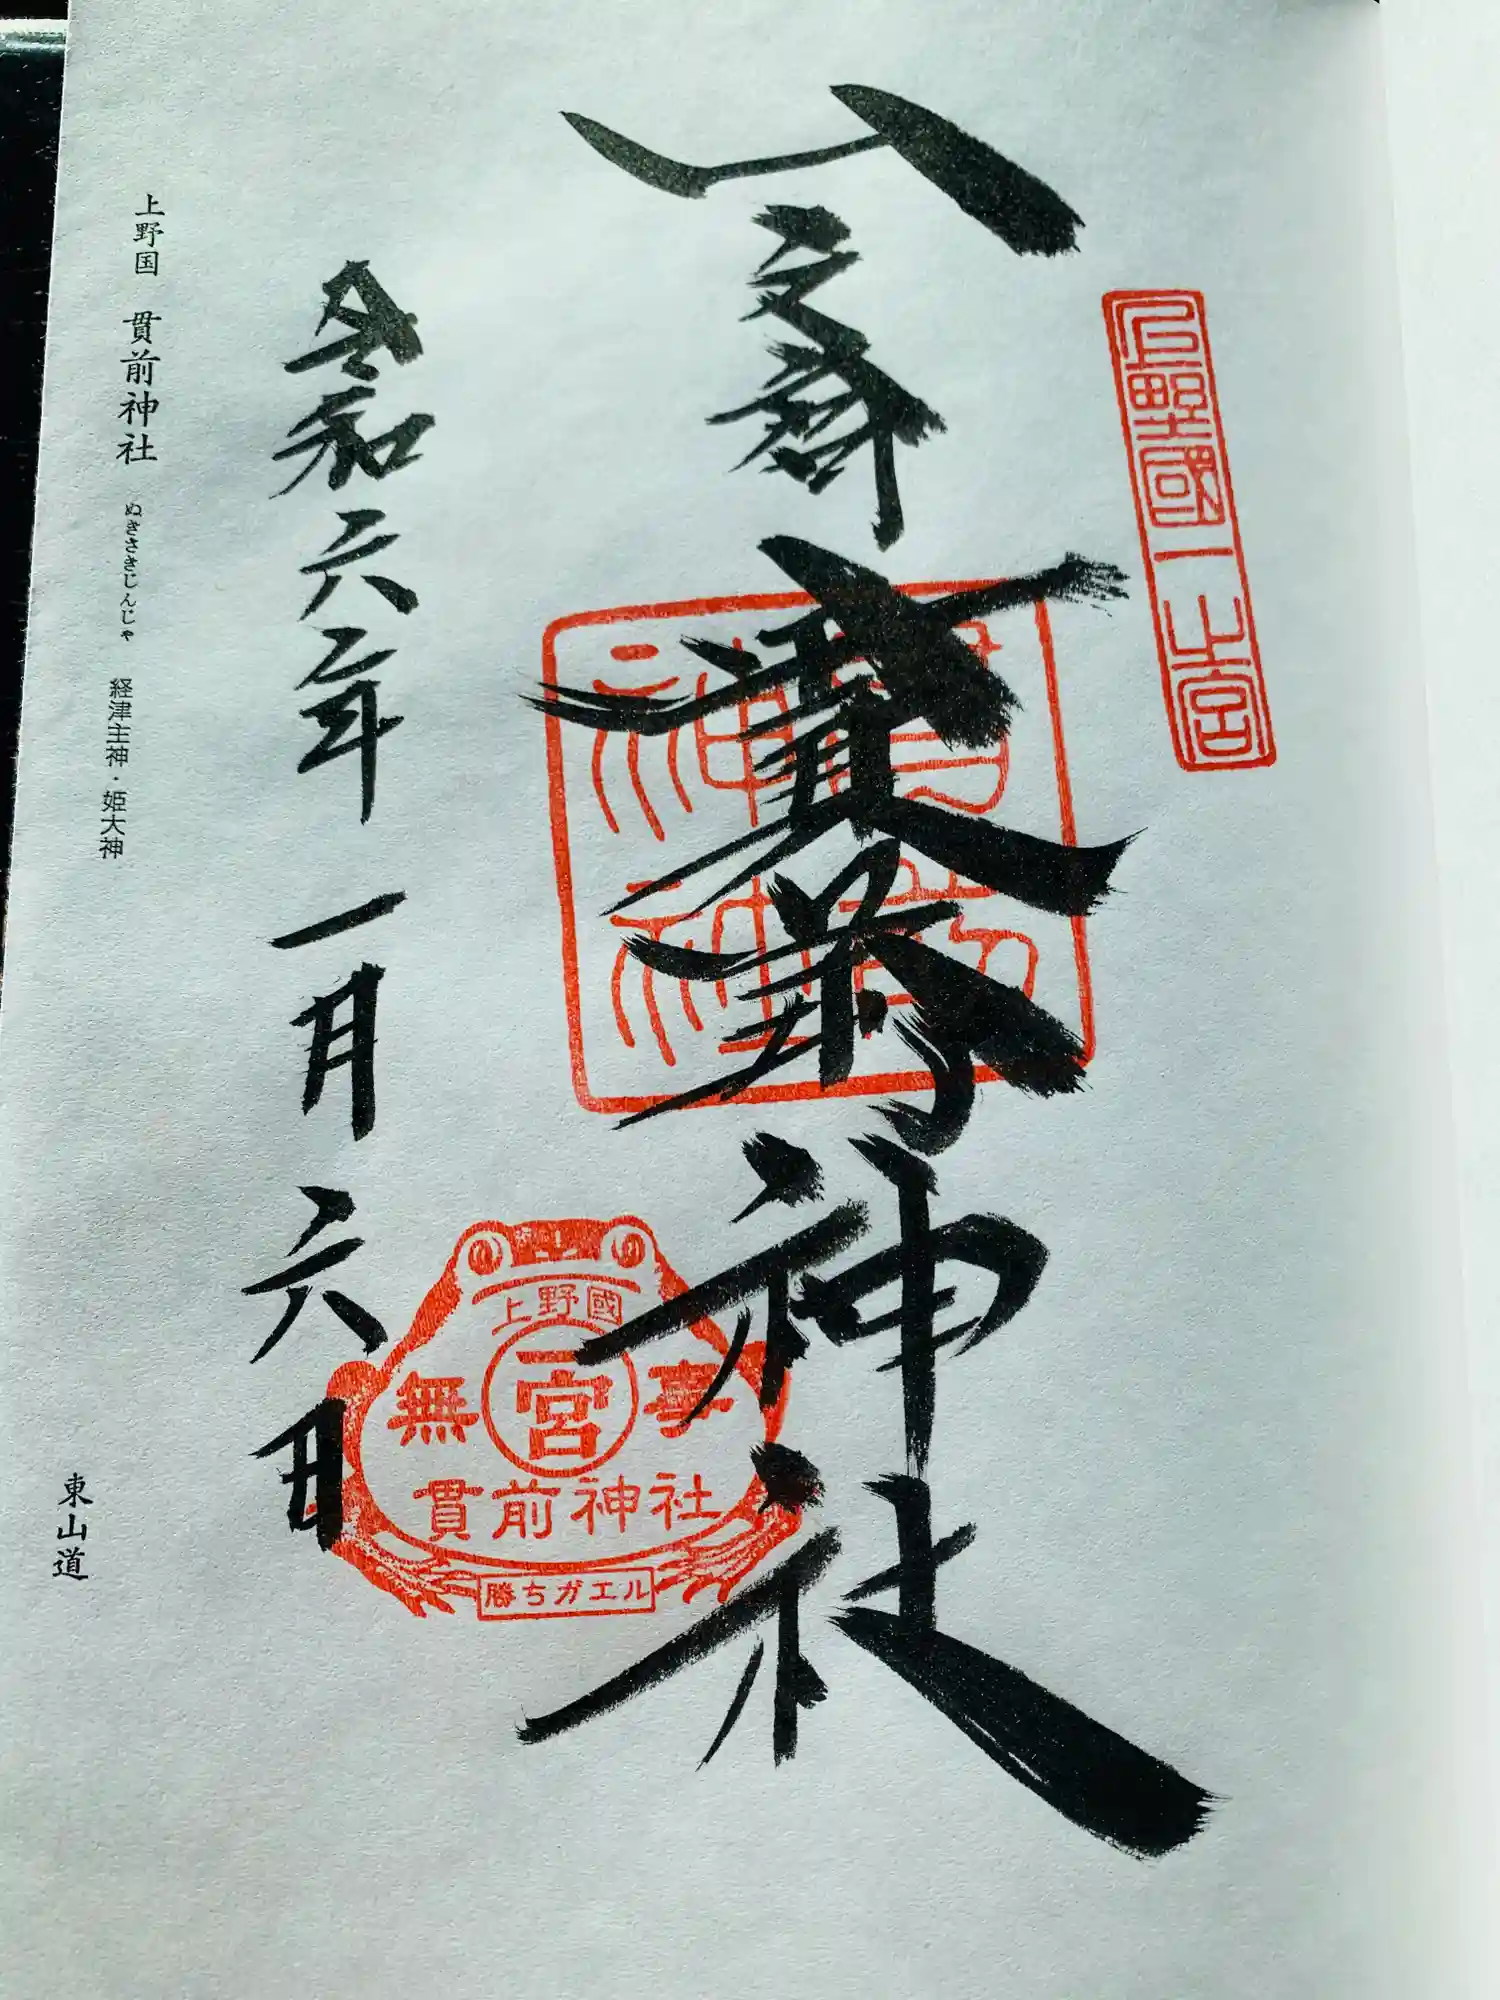 上野國一之宮
一之宮 貫前神社
貫前神社
令和六年一月六日
上野國
無 一宮 事
貫前神社
勝ちガエル
上野国 貫前神社 ぬきさきじんじゃ 経津主神・姫大神
東山道